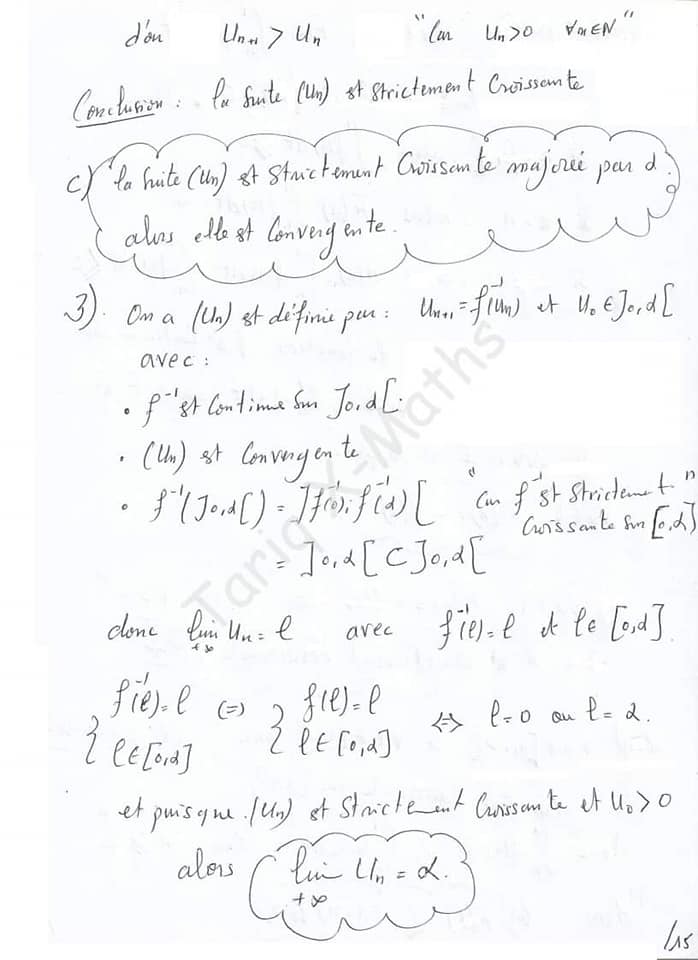 d'où Un+1 > Un "Car Un>0 ∀n∈ℕ"
Conclusion : la suite (Un) est strictement Croissante
c) la suite (Un) est strictement Croissante majorée par α.
alors elle est Convergente.
3). On a (Un) est définie par : Un+1 = f⁻¹(Un) et U₀ ∈ ]0,α[
avec :
• f⁻¹ est Continue sur ]0,α[.
• (Un) est Convergente
• f⁻¹(]0,α[) = ]f⁻¹(0); f⁻¹(α)[ "Car f⁻¹ est strictement
Croissante sur [0,α]"
= ]0,α[ ⊂ ]0,α[
donc lim Un = ℓ avec f⁻¹(ℓ) = ℓ et ℓ ∈ [0,α].
+∞
{ f⁻¹(ℓ) = ℓ (=) { f(ℓ) = ℓ ⇔ ℓ=0 ou ℓ= α.
ℓ∈[0,α] ℓ∈[0,α]
et puisque (Un) est strictement Croissante et U₀>0
alors lim Un = α.
+∞
/15
Tariq X-Maths